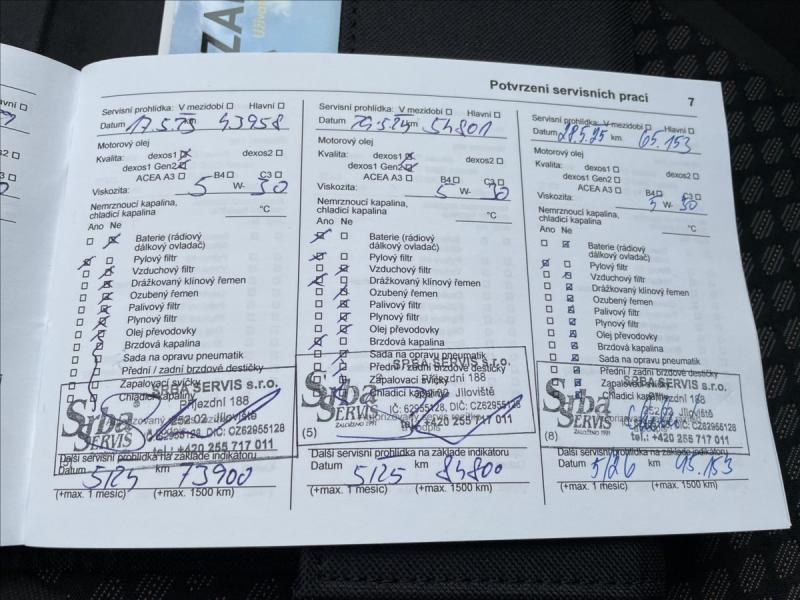 ZA
Uživa
Potvrzení servisních prací 7
Servisní prohlídka: V mezidobí Hlavní
Datum 17.5.23 43958
Motorový olej
Kvalita: dexos1 dexos2
dexos1 Gen2
ACEA A3 B4 C3
Viskozita: 5 W- 30
Nemrznoucí kapalina,
chladicí kapalina °C
Ano Ne
Baterie (rádiový
dálkový ovladač)
Pylový filtr
Vzduchový filtr
Drážkovaný klínový řemen
Ozubený řemen
Palivový filtr
Plynový filtr
Olej převodovky
Brzdová kapalina
Sada na opravu pneumatik
Přední / zadní brzdové destičky
Zapalovací svíčky
Chladicí kapalina
SRBA SERVIS s.r.o.
Příjezdní 188
252 02 Jíloviště
Srba
SERVIS
ZALOŽENO 1991
IČ: 62955128, DIČ: CZ62955128
tel.: +420 255 717 011
Další servisní prohlídka na základě indikátoru
Datum 5/24 km 73900
(+max. 1 měsíc) (+max. 1500 km)
Servisní prohlídka: V mezidobí Hlavní
Datum km 54801
Motorový olej
Kvalita: dexos1 dexos2
dexos1 Gen2
ACEA A3 B4 C3
Viskozita: 5 W- 30
Nemrznoucí kapalina,
chladicí kapalina °C
Ano Ne
Baterie (rádiový
dálkový ovladač)
Pylový filtr
Vzduchový filtr
Drážkovaný klínový řemen
Ozubený řemen
Palivový filtr
Plynový filtr
Olej převodovky
Brzdová kapalina
Sada na opravu pneumatik
Přední / zadní brzdové destičky
Zapalovací svíčky
Chladicí kapalina
SRBA SERVIS s.r.o.
Příjezdní 188
252 02 Jíloviště
Srba
SERVIS
ZALOŽENO 1991
IČ: 62955128, DIČ: CZ62955128
tel.: +420 255 717 011
(5) podpis
Další servisní prohlídka na základě indikátoru
Datum 5/25 km 84800
(+max. 1 měsíc) (+max. 1500 km)
Servisní prohlídka: V mezidobí Hlavní
Datum 28.5.25 km 65.153
Motorový olej
Kvalita: dexos1 dexos2
dexos1 Gen2
ACEA A3 B4 C3
Viskozita: 5 W- 30
Nemrznoucí kapalina,
chladicí kapalina °C
Ano Ne
Baterie (rádiový
dálkový ovladač)
Pylový filtr
Vzduchový filtr
Drážkovaný klínový řemen
Ozubený řemen
Palivový filtr
Plynový filtr
Olej převodovky
Brzdová kapalina
Sada na opravu pneumatik
Přední / zadní brzdové destičky
Zapalovací svíčky
Chladicí kapalina
SRBA SERVIS s.r.o.
Příjezdní 188
252 02 Jíloviště
Srba
SERVIS
ZALOŽENO 1991
IČ: 62955128, DIČ: CZ62955128
tel.: +420 255 717 011
(8)
Další servisní prohlídka na základě indikátoru
Datum 5/26 km 95.153
(+max. 1 měsíc) (+max. 1500 km)